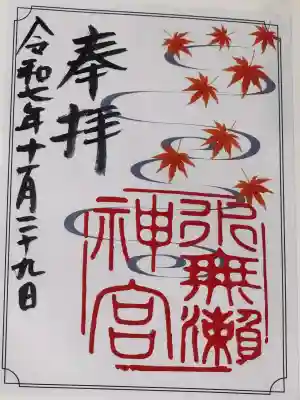 奉拝
水無瀨
神宮
令和七年十一月二十九日